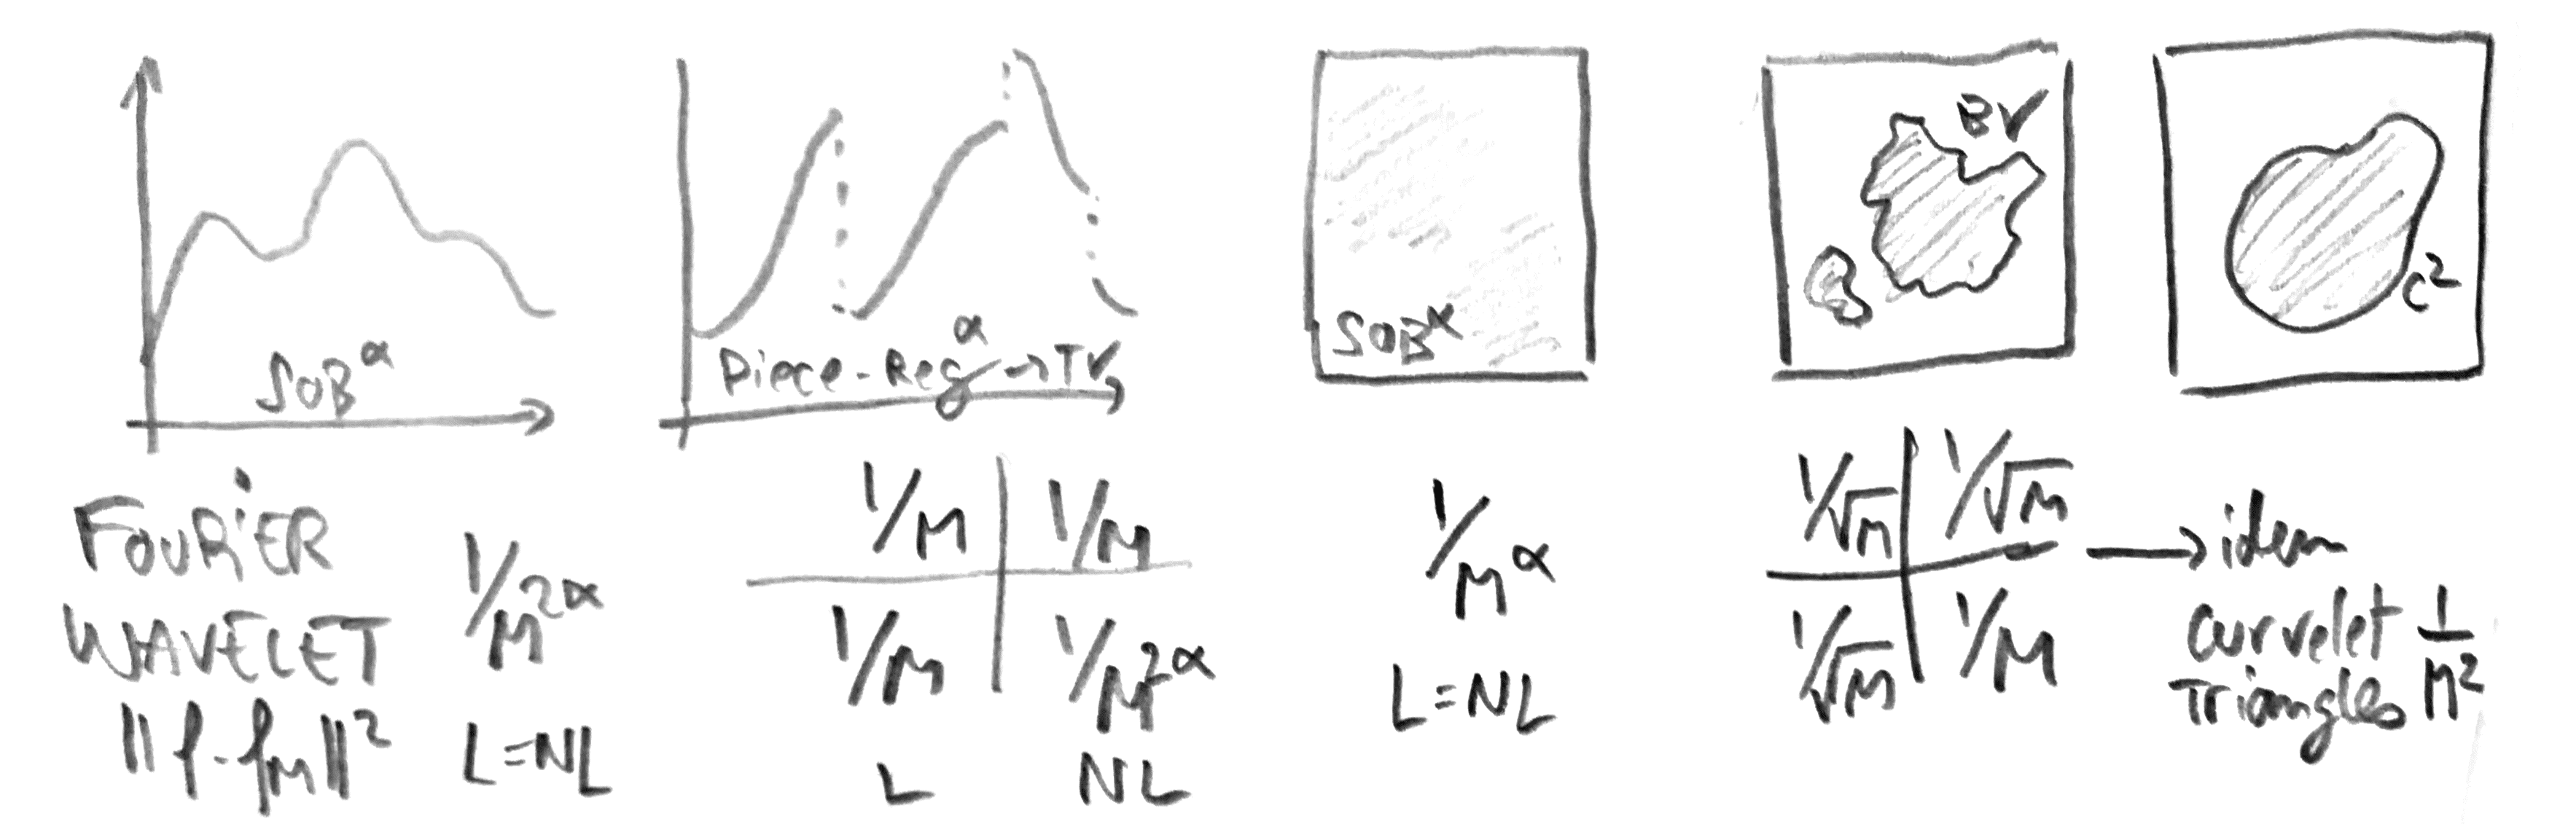 SOB^α
Piece-Reg^α → TV
SOB^α
BV
C²
FOURIER
WAVELET
||f-f_M||²
1/M^2α
L=NL
1/M 1/M
1/M 1/M^2α
L NL
1/M^α
L=NL
1/√M 1/√M
1/√M 1/M
→ idem
curvelet
Triangles
1/M²